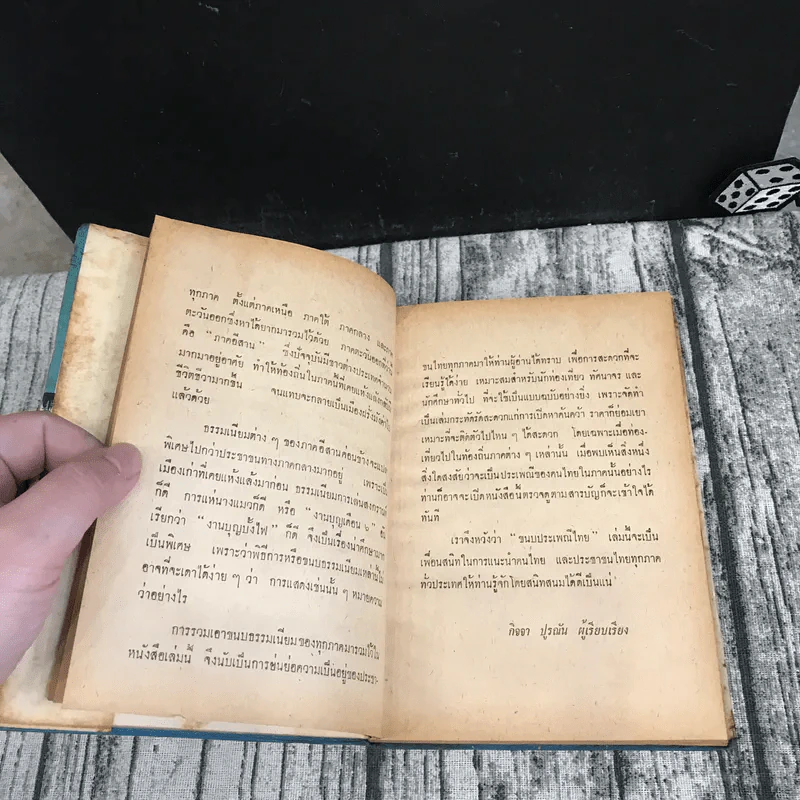 ทุกภาค ตั้งแต่ภาคเหนือ ภาคใต้ ภาคกลาง และภาค
ตะวันออกซึ่งหาได้ยากมารวมไว้ด้วย ภาคตะวันออก
คือ “ภาคอีสาน” ซึ่งปัจจุบันมีชาวต่างประเทศจำนวน
มากมาอยู่อาศัย ทำให้ท้องถิ่นในภาคนี้ที่เคยแห้งแล้ง
ชีวิตชีวามากขึ้น จนแทบจะกลายเป็นเมืองฝรั่ง
แล้วด้วย
ธรรมเนียมต่าง ๆ ของภาคอีสานค่อนข้างจะแปลก
พิเศษไปกว่าประชาชนทางภาคกลางมากอยู่ เพราะเป็น
เมืองเก่าที่เคยแห้งแล้งมาก่อน ธรรมเนียมการเล่นสงกรานต์
ก็ดี การแห่นางแมวก็ดี หรือ “งานบุญเดือน ๖” อัน
เรียกว่า “งานบุญบั้งไฟ” ก็ดี จึงเป็นเรื่องน่าศึกษามาก
เป็นพิเศษ เพราะว่าพิธีการหรือขนบธรรมเนียมเหล่านี้ไม่
อาจที่จะเดาได้ง่าย ๆ ว่า การแสดงเช่นนั้น ๆ หมายความ
ว่าอย่างไร
การรวมเอาขนบธรรมเนียมของทุกภาคมารวมไว้ใน
หนังสือเล่มนี้ จึงนับเป็นการช่นย่อความเป็นอยู่ของประชา-
ชนไทยทุกภาคมาให้ท่านผู้อ่านได้ทราบ เพื่อการสะดวกที่จะ
เรียนรู้ได้ง่าย เหมาะสมสำหรับนักท่องเที่ยว ทัศนาจร และ
นักศึกษาทั่วไป ที่จะใช้เป็นแบบฉบับอย่างยิ่ง เพราะจัดทำ
เป็นเล่มกระทัดรัดสะดวกแก่การเปิดหาค้นคว้า ราคาก็ย่อมเยา
เหมาะที่จะติดตัวไปไหน ๆ ได้สะดวก โดยเฉพาะเมื่อท่อง-
เที่ยวไปในท้องถิ่นภาคต่าง ๆ เหล่านั้น เมื่อพบเห็นสิ่งหนึ่ง
สิ่งใดสงสัยว่าจะเป็นประเพณีของคนไทยในภาคนั้นอย่างไร
ท่านก็อาจจะเปิดหนังสือนี้ตรวจดูตามสารบัญก็จะเข้าใจได้
ทันที
เราจึงหวังว่า “ขนบประเพณีไทย” เล่มนี้จะเป็น
เพื่อนสนิทในการแนะนำคนไทย และประชาชนไทยทุกภาค
ทั่วประเทศให้ท่านรู้จักโดยสนิทสนมได้ดีเป็นแน่
กิจจา ปูรณัน ผู้เรียบเรียง